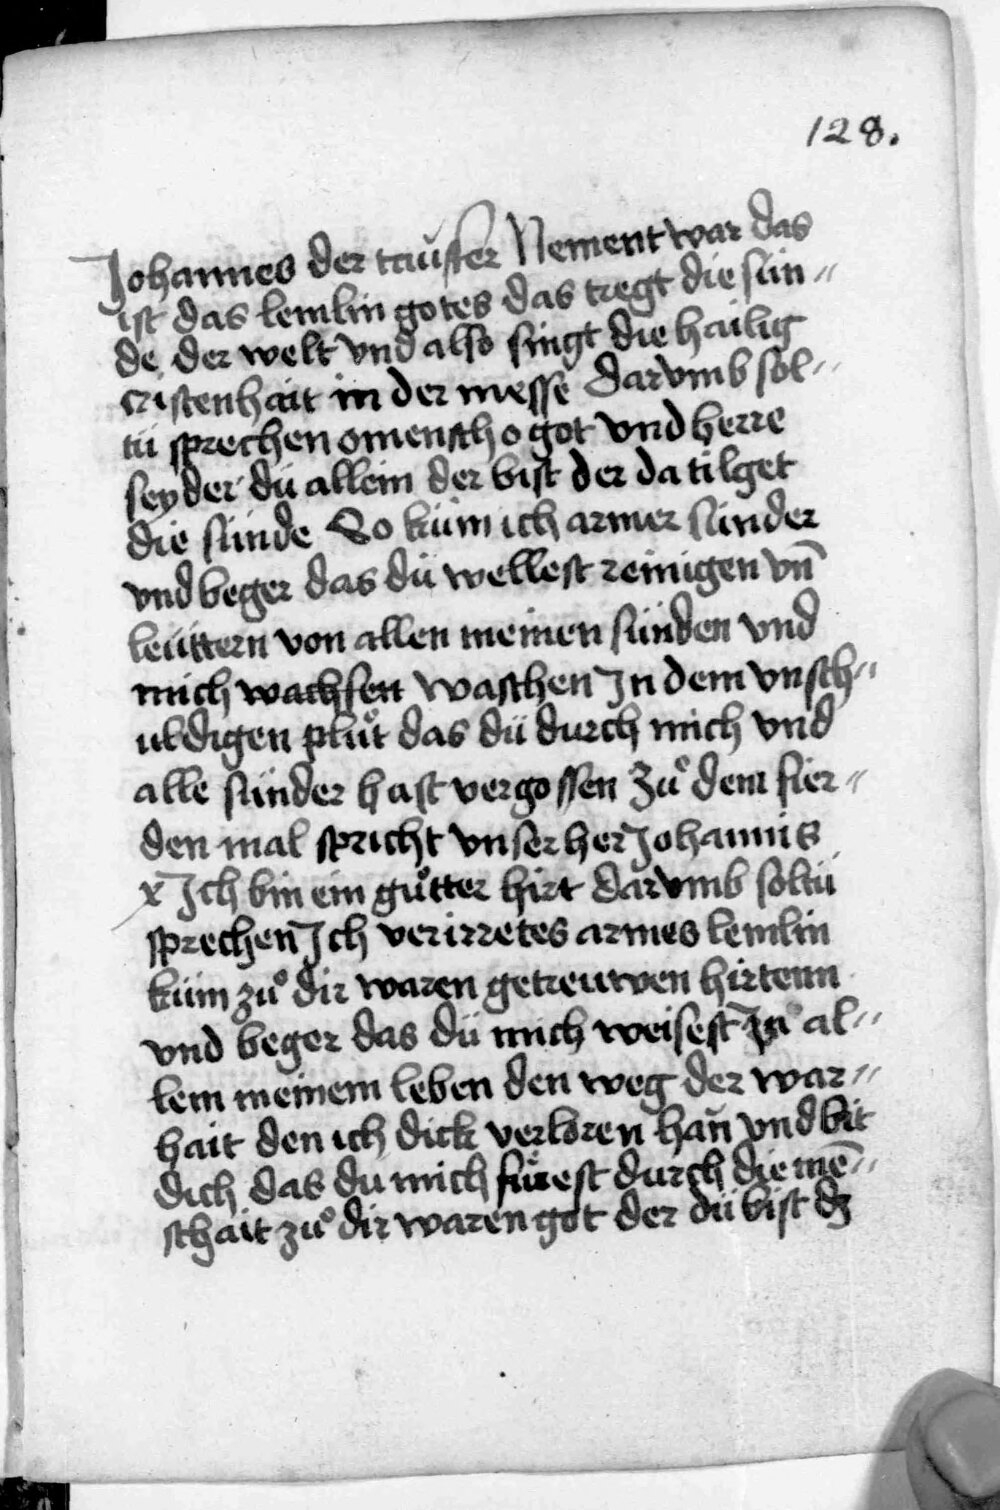 128.
Johannes der tauffer Nement war das
ist das lemlin gotes das tregt die sün=
de der welt vnd also singt die hailig
cristenhait in der messe darvmb sol=
tü sprechen o mensch o got vnd herre
seyder dü allein der bist der da tilget
die sünde So küm ich armer sünder
vnd beger das dü wellest reinigen vn̄
leüttern von allen meinen sünden vnd
mich wachsen waschen Jn dem vnsch=
uldigen plüͦt das dü durch mich vnd
alle sünder hast vergossen Züͦ dem fier=
den mal spricht vnser her Johannis
x Jch bin ein guͦtter hirt darvmb soltü
sprechen Jch verirretes armes lemlin
küm züͦ dir waren getreuwen hirtenn
vnd beger das dü mich weisest Jn al=
lem meinem leben den weg der war=
hait den ich dick verloren han̄ vnd bit
dich das du mich füͤrest durch die mē=
schait züͦ dir waren got der dü bist dz